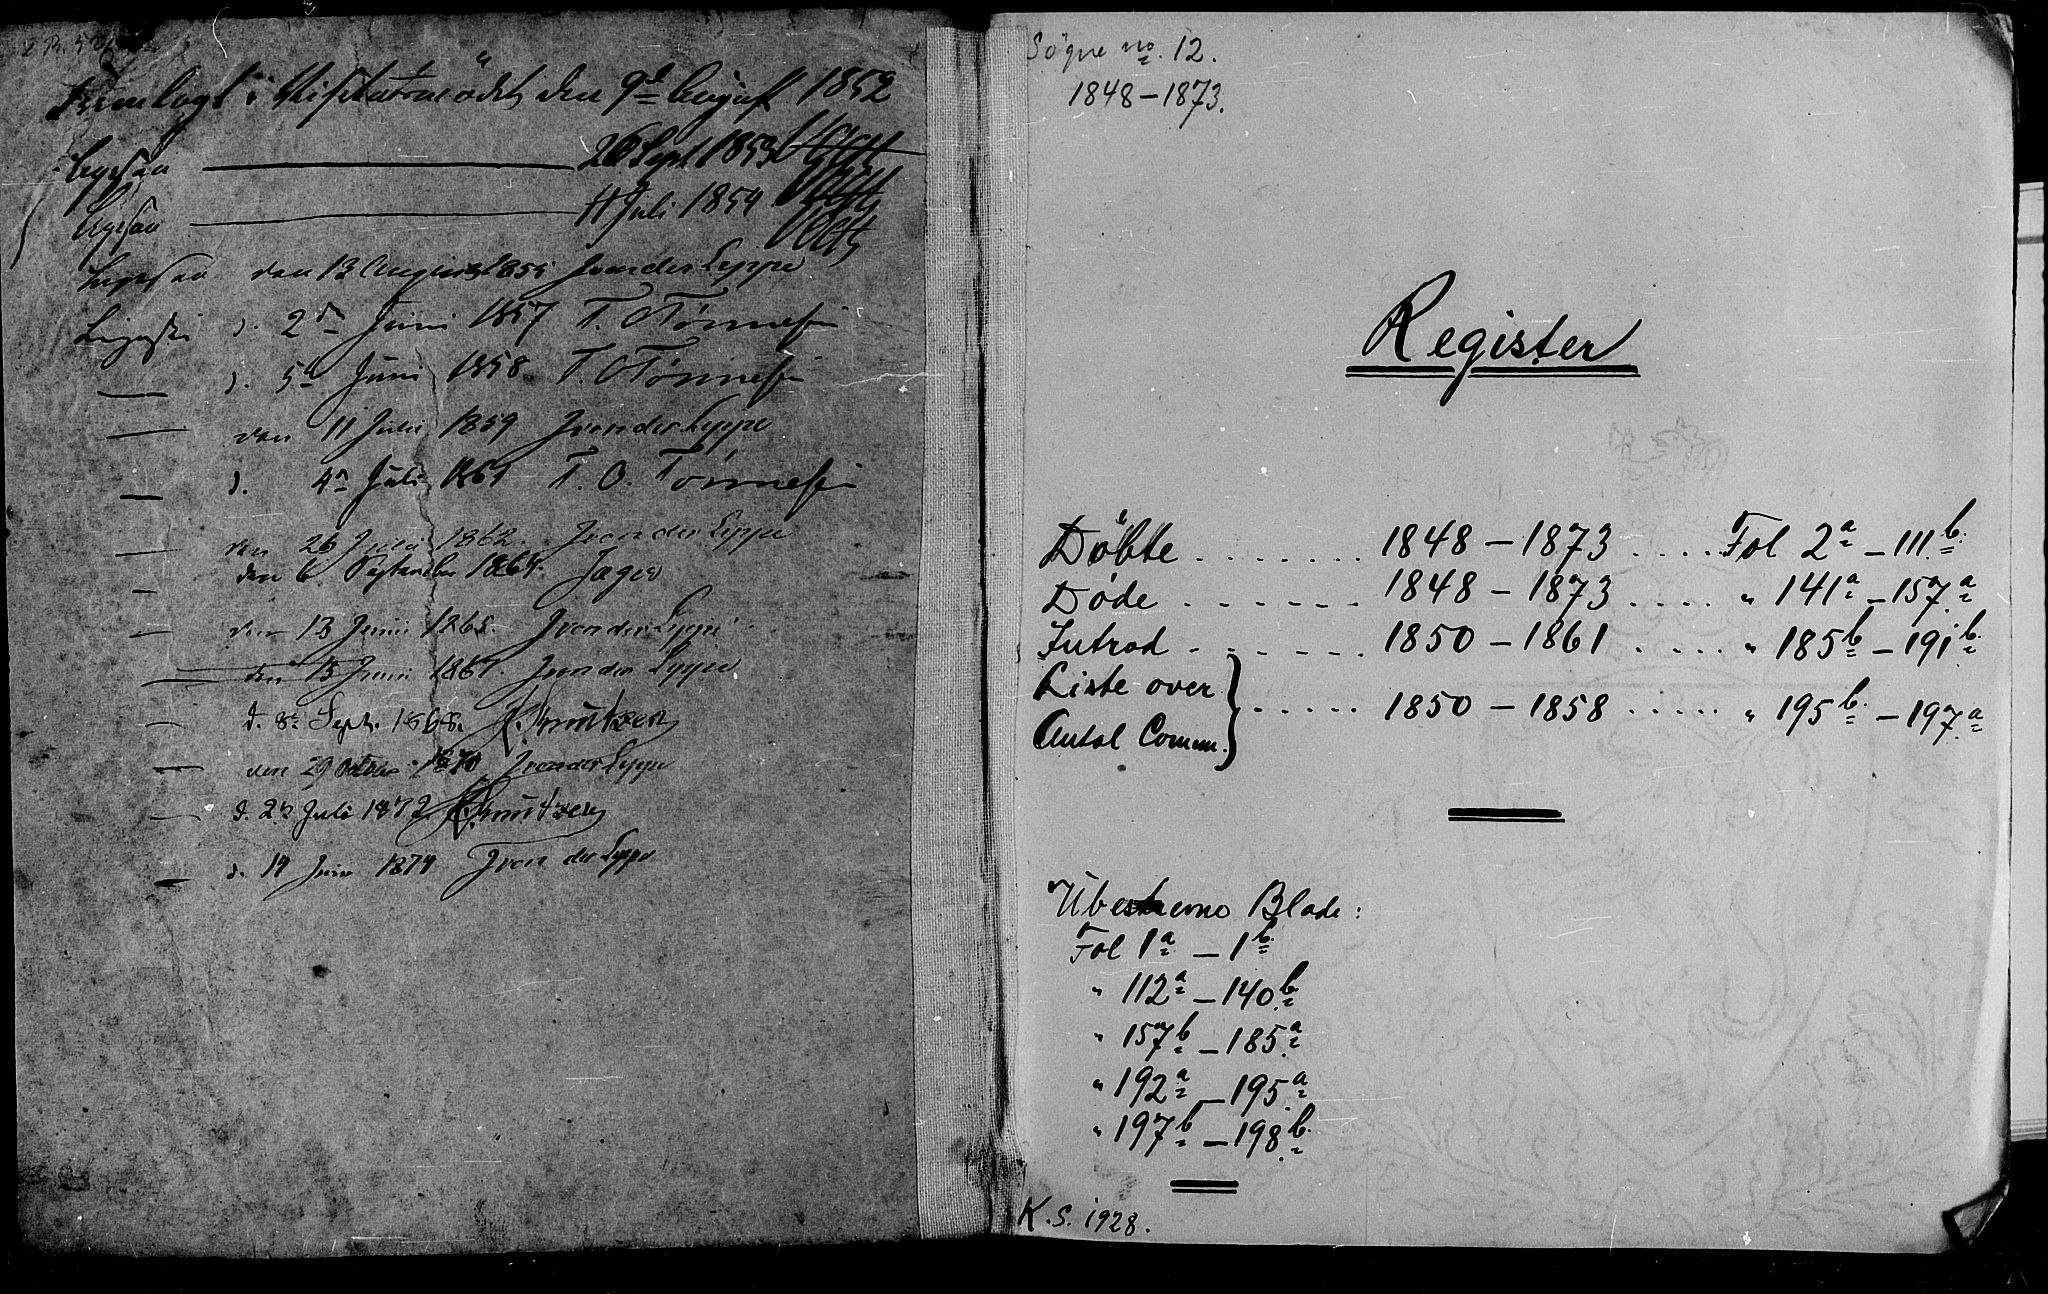 Fremlagt i Visitatsmødet den 9de August 1852
Ligesaa 26 Sept 1853
Ligesaa 11 Juli 1854
Ligesaa den 13 August 1855 J von der Lippe
Ligesaa d. 2den Juni 1857 T. O Tønnessen
— d. 5te Juni 1858 T. O Tønnessen
— den 11 Juli 1859 J von der Lippe
— d. 4de Juli 1861 T. O. Tønnessen
— den 26 Juli 1862. J von der Lippe
— den 6 September 1864. Jæger
— den 13 Juni 1865. J von der Lippe
— den 15 Juni 1867. J von der Lippe
— d. 8de Septr. 1868. Knutzen
— den 29 October 1870 J von der Lippe
— d. 22 Juli 1872. Knutzen
— d. 14 Juni 1874 J von der Lippe
Søgne no. 12.
1848-1873.
Register
Döbte . . . . . . . 1848 - 1873 . . . . Fol 2a - 111b.
Døde . . . . . . 1848 - 1873 . . . . " 141a - 157a
Introd . . . . . . 1850 - 1861 . . . . " 185b - 191b.
Liste over
Antal Comm. } . . . . . . 1850 - 1858 . . . . . " 195b. - 197a
Ubeskrevne Blade:
Fol 1a - 1b.
" 112a - 140b.
" 157b - 185a
" 192a - 195a
" 197b. - 198b.
K. S. 1928.